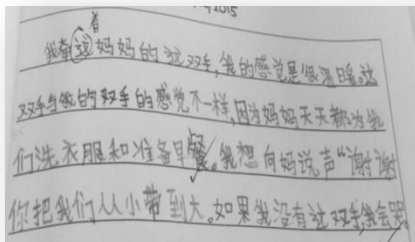 着
我牵这妈妈的这双手,我的感觉是很温暖。这
双手与我的双手的感觉不一样,因为妈妈天天都为我
们洗衣服和准备早餐。我想向妈说声“谢谢
你把我们从小带到大。如果我没有这双手,我会哭